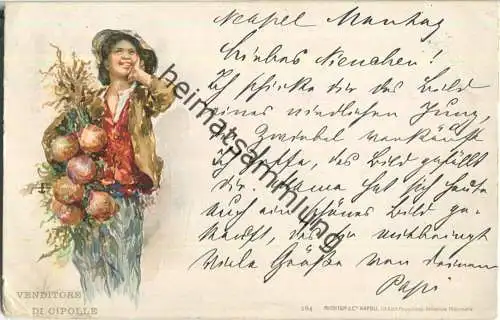 Neapel Montag
Liebes Nienchen!
Ich schicke dir das Bild
eines niedlichen Jung,
der Zwiebel verkauft
Ich hoffe, das Bild gefällt
dir. Mama hat sich heute
auch ein schönes Bild ge-
kauft, das sie mitbringt
Viele Grüße von deinem
Papi
VENDITORE
DI CIPOLLE
194 RICHTER & C.º NAPOLI
heimatsammlung.de